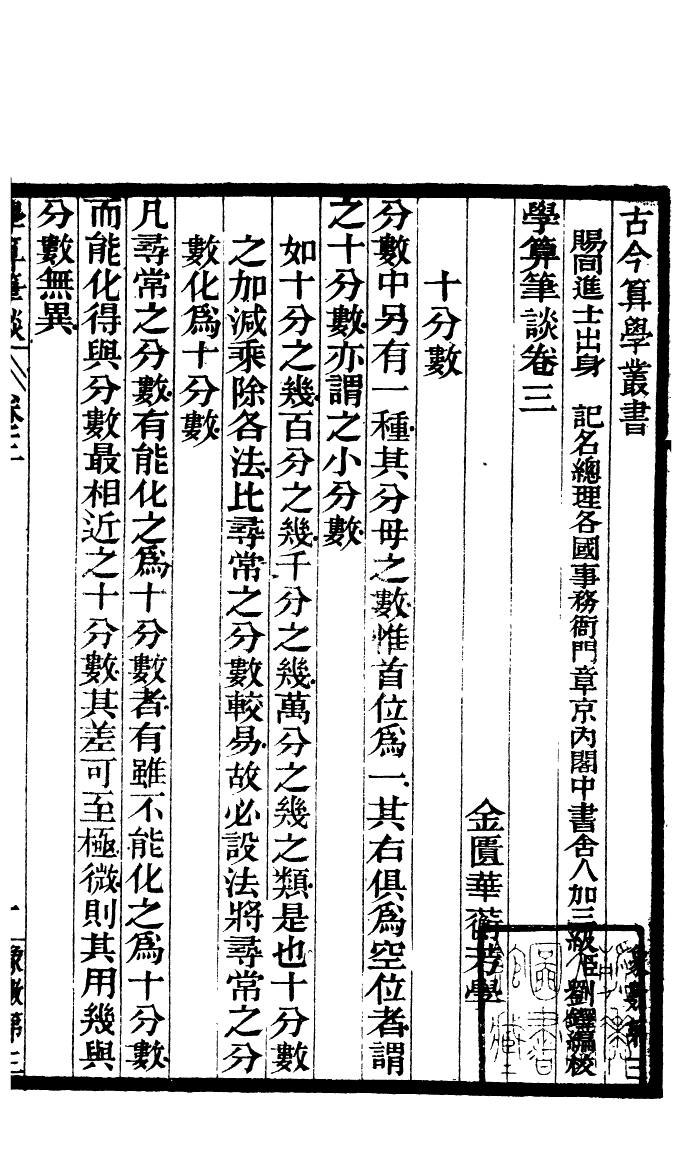 古今算學叢書　象數第三
賜同進士出身　記名總理各國事務衙門章京內閣中書舍人加三級劉鐸編校
學算筆談卷三
金匱華蘅芳學
十分數
分數中另有一種其分母之數惟首位爲一其右俱爲空位者謂
之十分數亦謂之小分數
如十分之幾百分之幾千分之幾萬分之幾之類是也十分數
之加減乘除各法比尋常之分數較易故必設法將尋常之分
數化爲十分數
凡尋常之分數有能化之爲十分數者有雖不能化之爲十分數
而能化得與分數最相近之十分數其差可至極微則其用幾與
分數無異
學算筆談　卷三　一　象數第三